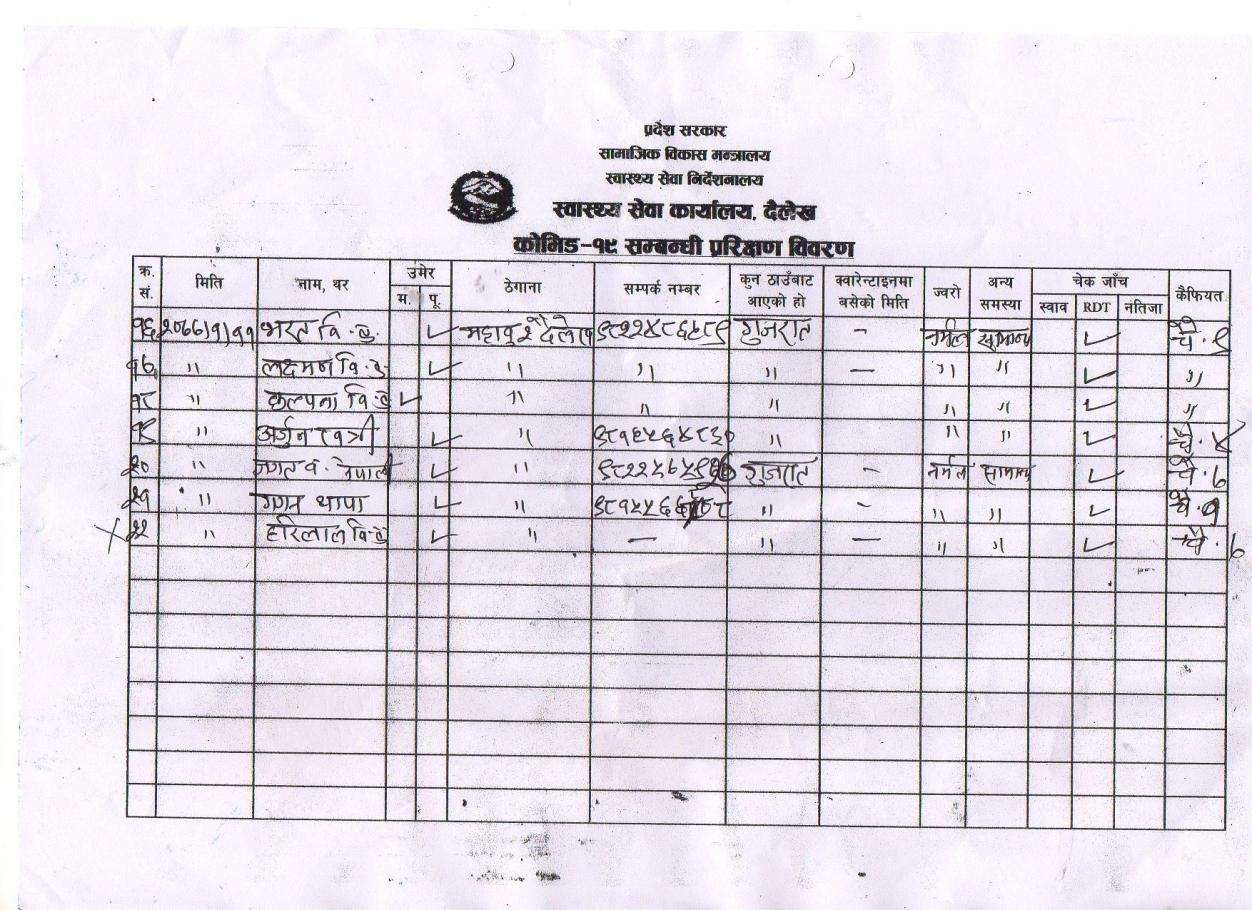 प्रदेश सरकार
सामाजिक विकास मन्त्रालय
स्वास्थ्य सेवा निर्देशनालय
स्वास्थ्य सेवा कार्यालय, दैलेख
कोभिड-१९ सम्बन्धी परिक्षण विवरण
क्र. सं. मिति नाम, थर उमेर म. पू. ठेगाना सम्पर्क नम्बर कुन ठाउँबाट आएको हो क्वारेन्टाइनमा बसेको मिति ज्वरो अन्य समस्या चेक जाँच स्वाव RDT नतिजा कैफियत
१६ २०७७|१|११ भरत वि.क. ✓ महावु २ दैलेख गुजरात - नर्मल सामान्य ✓ चै. ९
१७ " लक्ष्मन वि.क. ✓ " " " — " " ✓ "
१८ " कल्पना वि.क. ✓ " " " " " ✓ "
१९ " अर्जुन खत्री ✓ " ९८१६५६४८३० " " " ✓ चै. ४
२० " जगत ब. नेपाली ✓ " गुजरात - नर्मल सामान्य ✓ चै. ७
२१ " गगन थापा ✓ " " - " " ✓ चै. १
२२ " हरिलाल वि.क. ✓ " — " — " " ✓ चै. ७